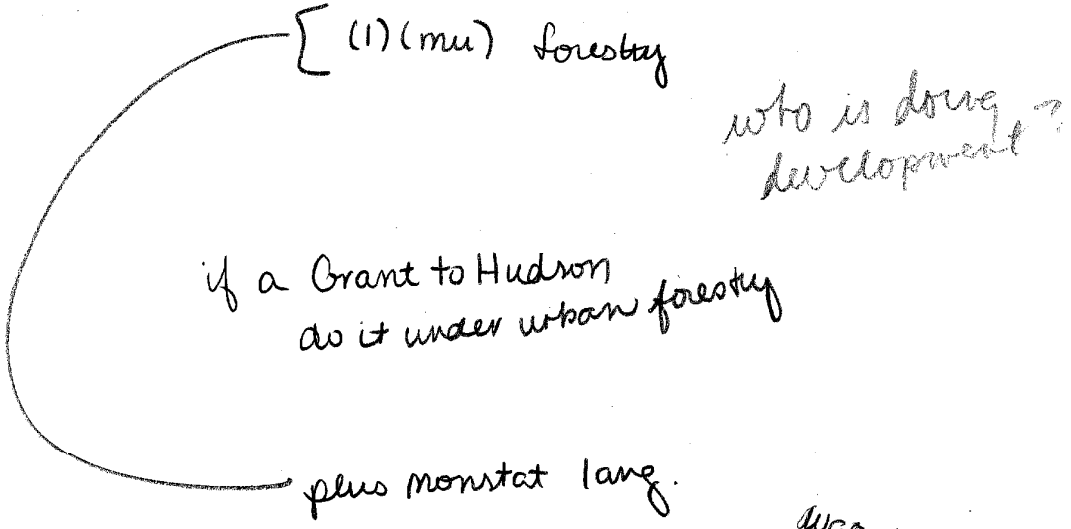 [ (1) (mu) forestry
who is doing
development?
if a Grant to Hudson
do it under urban forestry
plus nonstat lang.